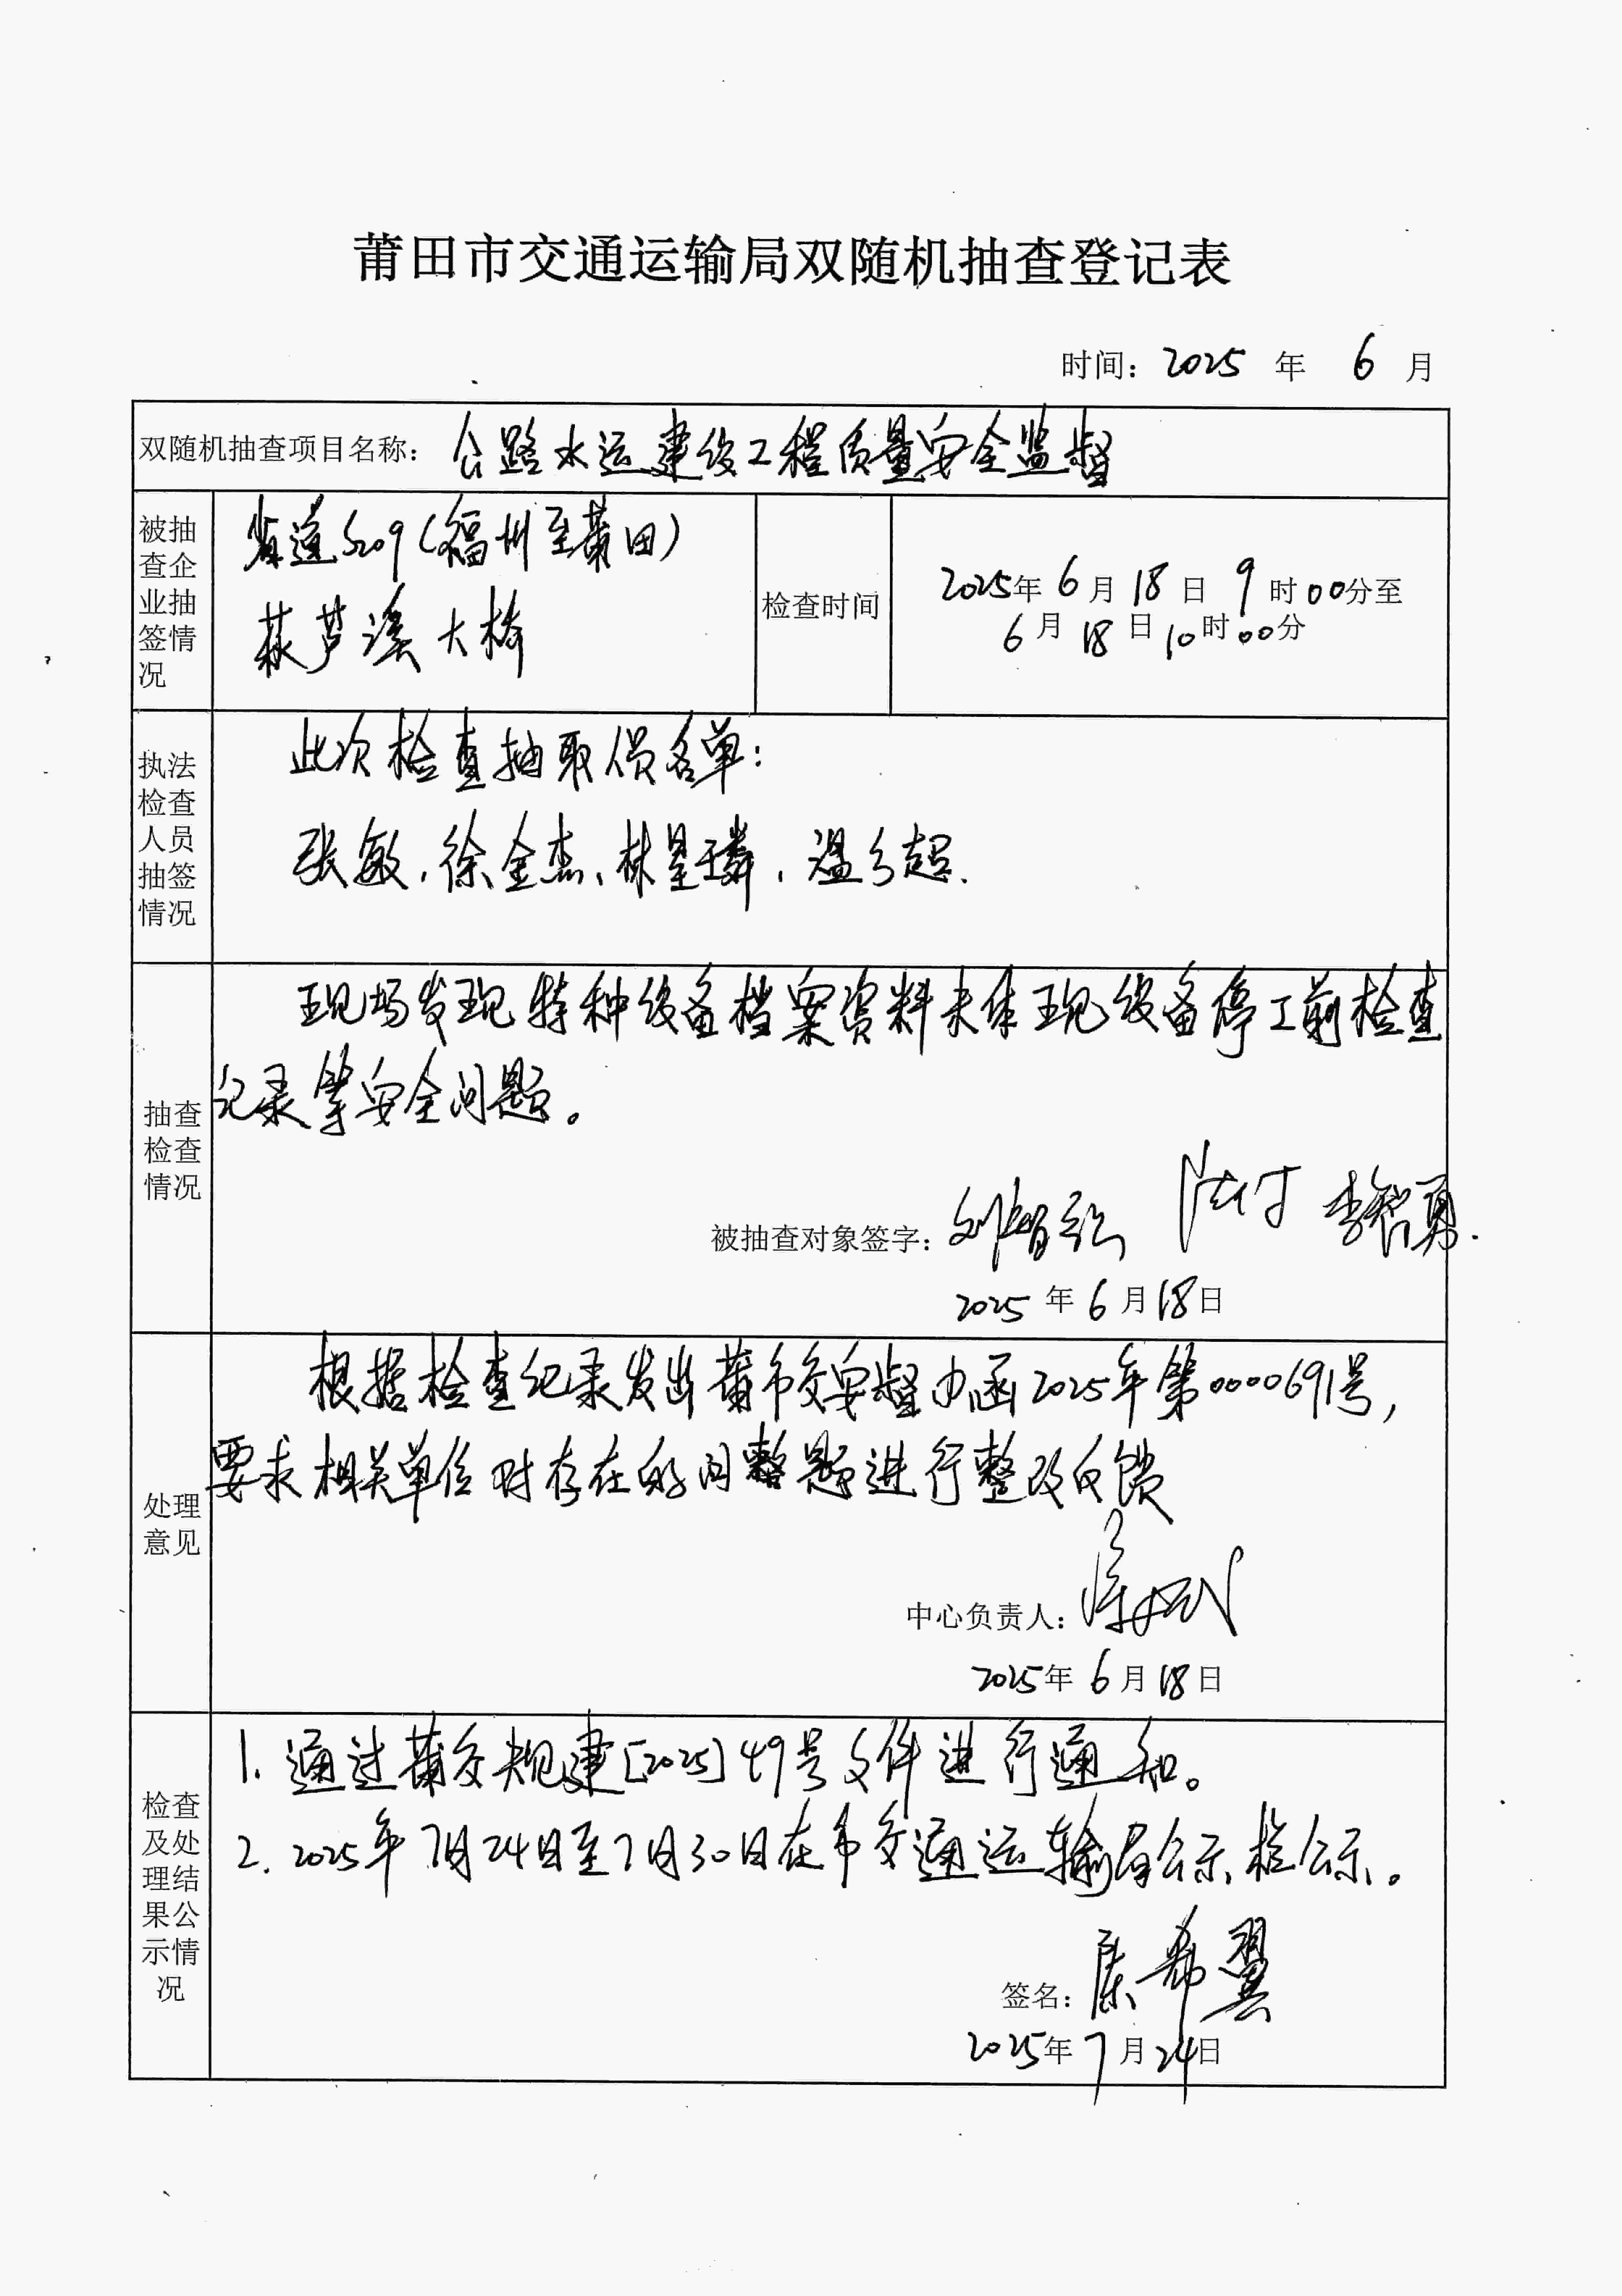 莆田市交通运输局双随机抽查登记表
时间：2025 年 6 月
双随机抽查项目名称：公路水运建设工程质量安全监督
被抽查企业抽签情况
省道S209（福州至莆田）
萩芦溪大桥
检查时间
2025年 6 月 18 日 9 时 00分至
6 月 18 日 10 时 00分
执法检查人员抽签情况
此次检查抽取人员名单：
张敏、徐金杰、林星璘、温超.
抽查检查情况
现场发现特种设备档案资料未体现设备停工前检查
记录等安全问题。
被抽查对象签字： 李智勇.
2025 年 6 月 18 日
处理意见
根据检查纪录发出莆市交安督办函2025年第0000691号，
要求相关单位对存在的问题进行整改反馈
中心负责人：
2025年 6 月 18 日
检查及处理结果公示情况
1. 通过莆交规建[2025]49号文件进行通知。
2. 2025年7月24日至7月30日在市交通运输局公示栏公示。
签名：康希翼
2025年 7 月 24日